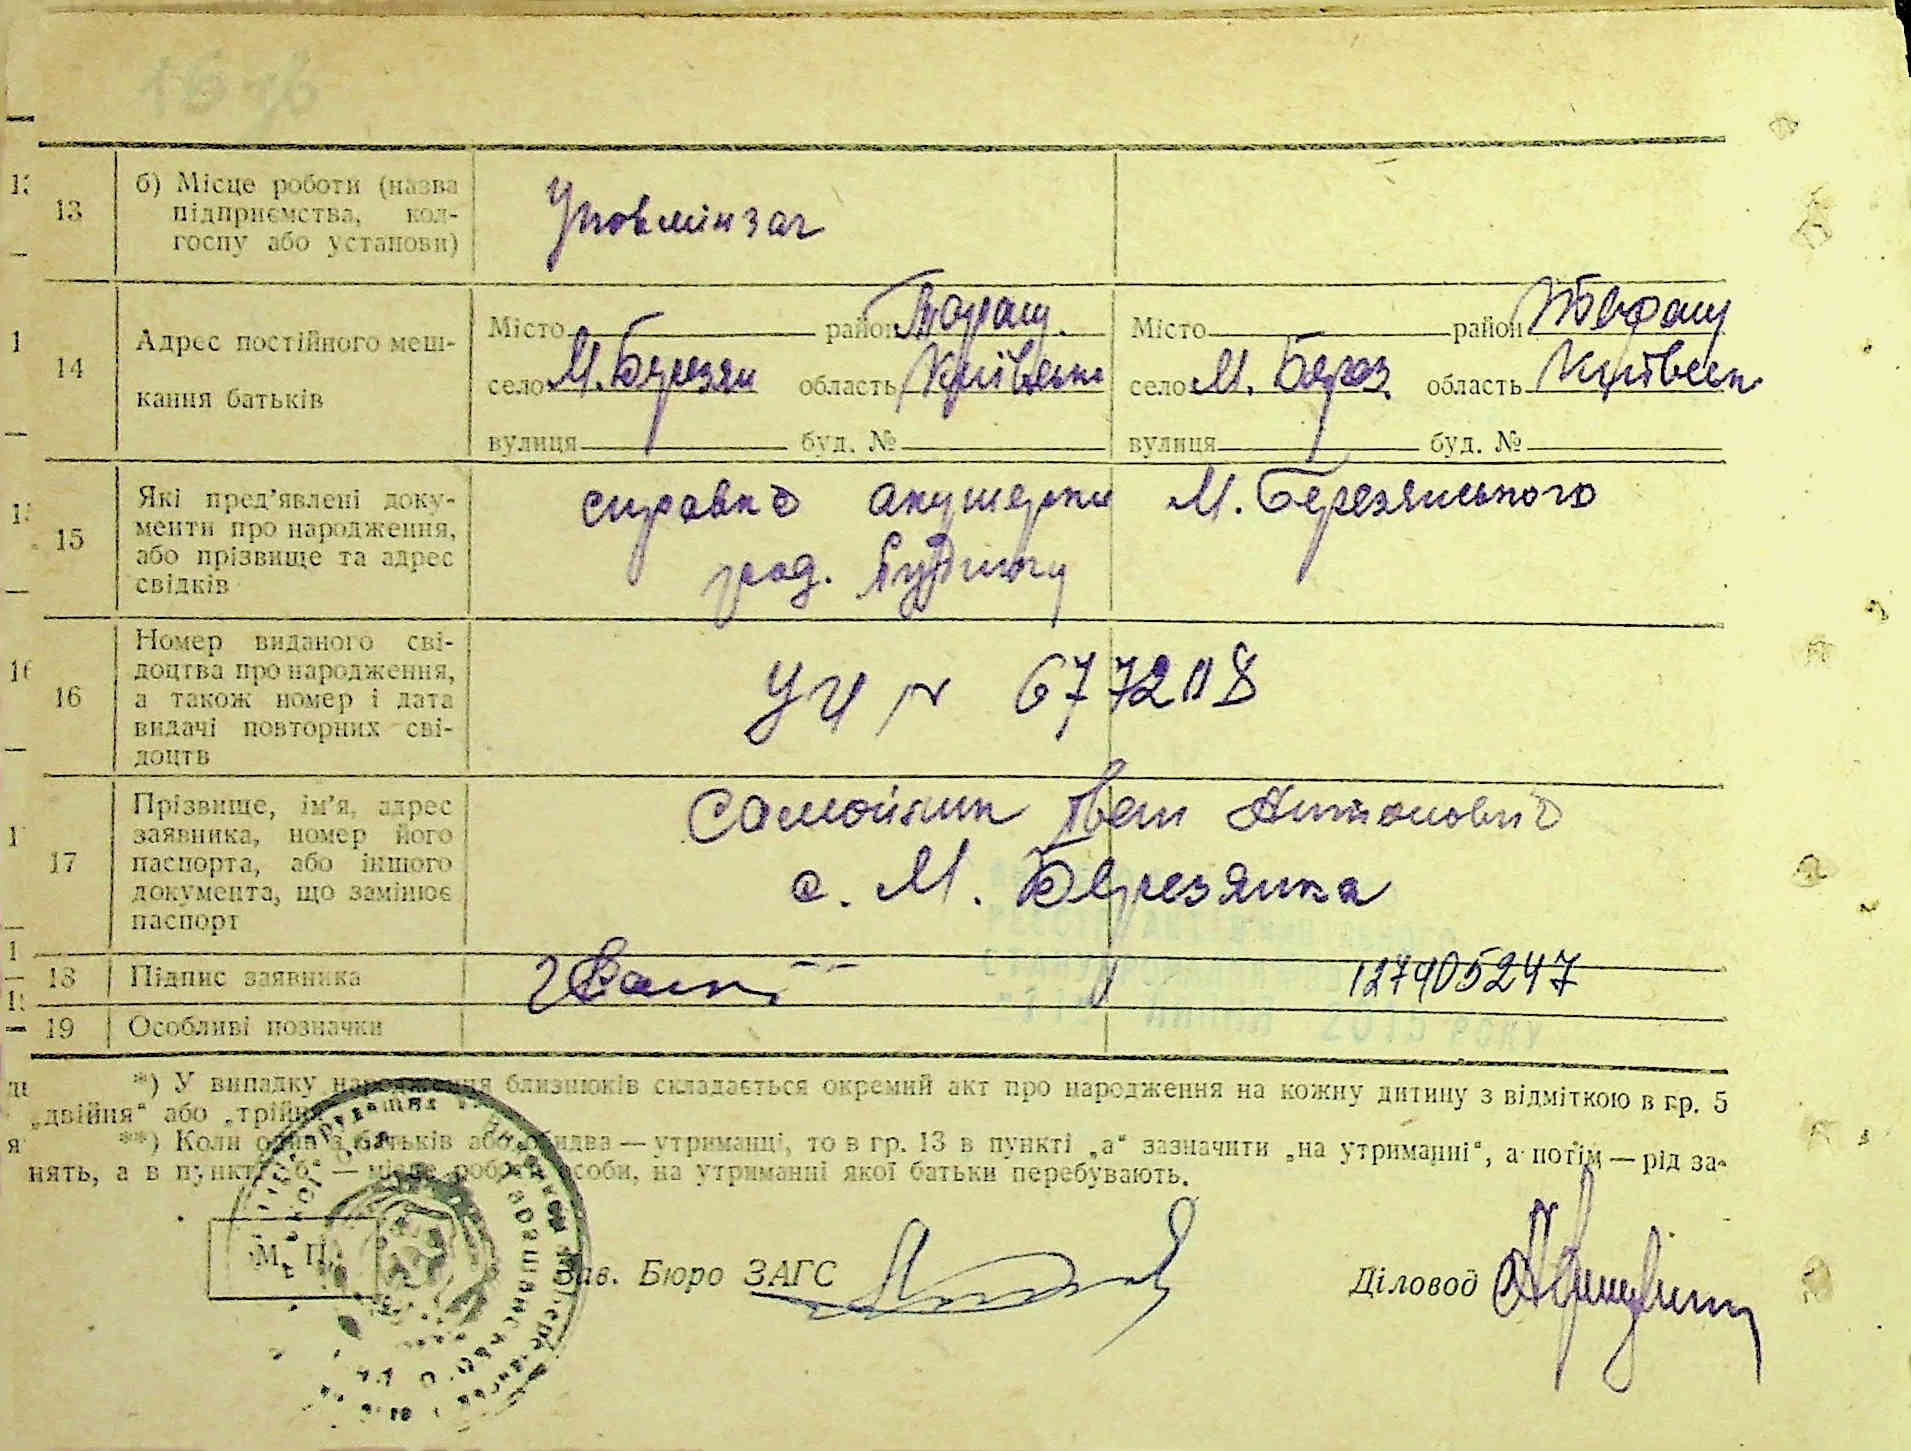 13
б) Місце роботи (назва
підприємства, кол-
госпу або установи)
Уповмінзаг
14
Адрес постійного меш-
кання батьків
Місто район Таращ. Місто район
село М. Березян область Київськ село М. Берез область Київськ
вулиця буд. № вулиця буд. №
15
Які пред'явлені доку-
менти про народження,
або прізвище та адрес
свідків
справка акушерки М. Березянського
род. будинку
16
Номер виданого сві-
доцтва про народження,
а також номер і дата
видачі повторних сві-
доцтв
УЧ № 677208
17
Прізвище, ім'я, адрес
заявника, номер його
паспорта, або іншого
документа, що замінює
паспорт
Самойлик Іван Антонович
с. М. Березянка
18 Підпис заявника
19 Особливі позначки
2015 РОКУ
*) У випадку народження близнюків складається окремий акт про народження на кожну дитину з відміткою в гр. 5
„двійня“ або „трійня
**) Коли один з батьків або обидва — утриманці, то в гр. 13 в пункті „а“ зазначити „на утриманні“, а потім — рід за-
нять, а в пункті „б“ — місце роботи особи, на утриманні якої батьки перебувають.
М. П.
Зав. Бюро ЗАГС Діловод